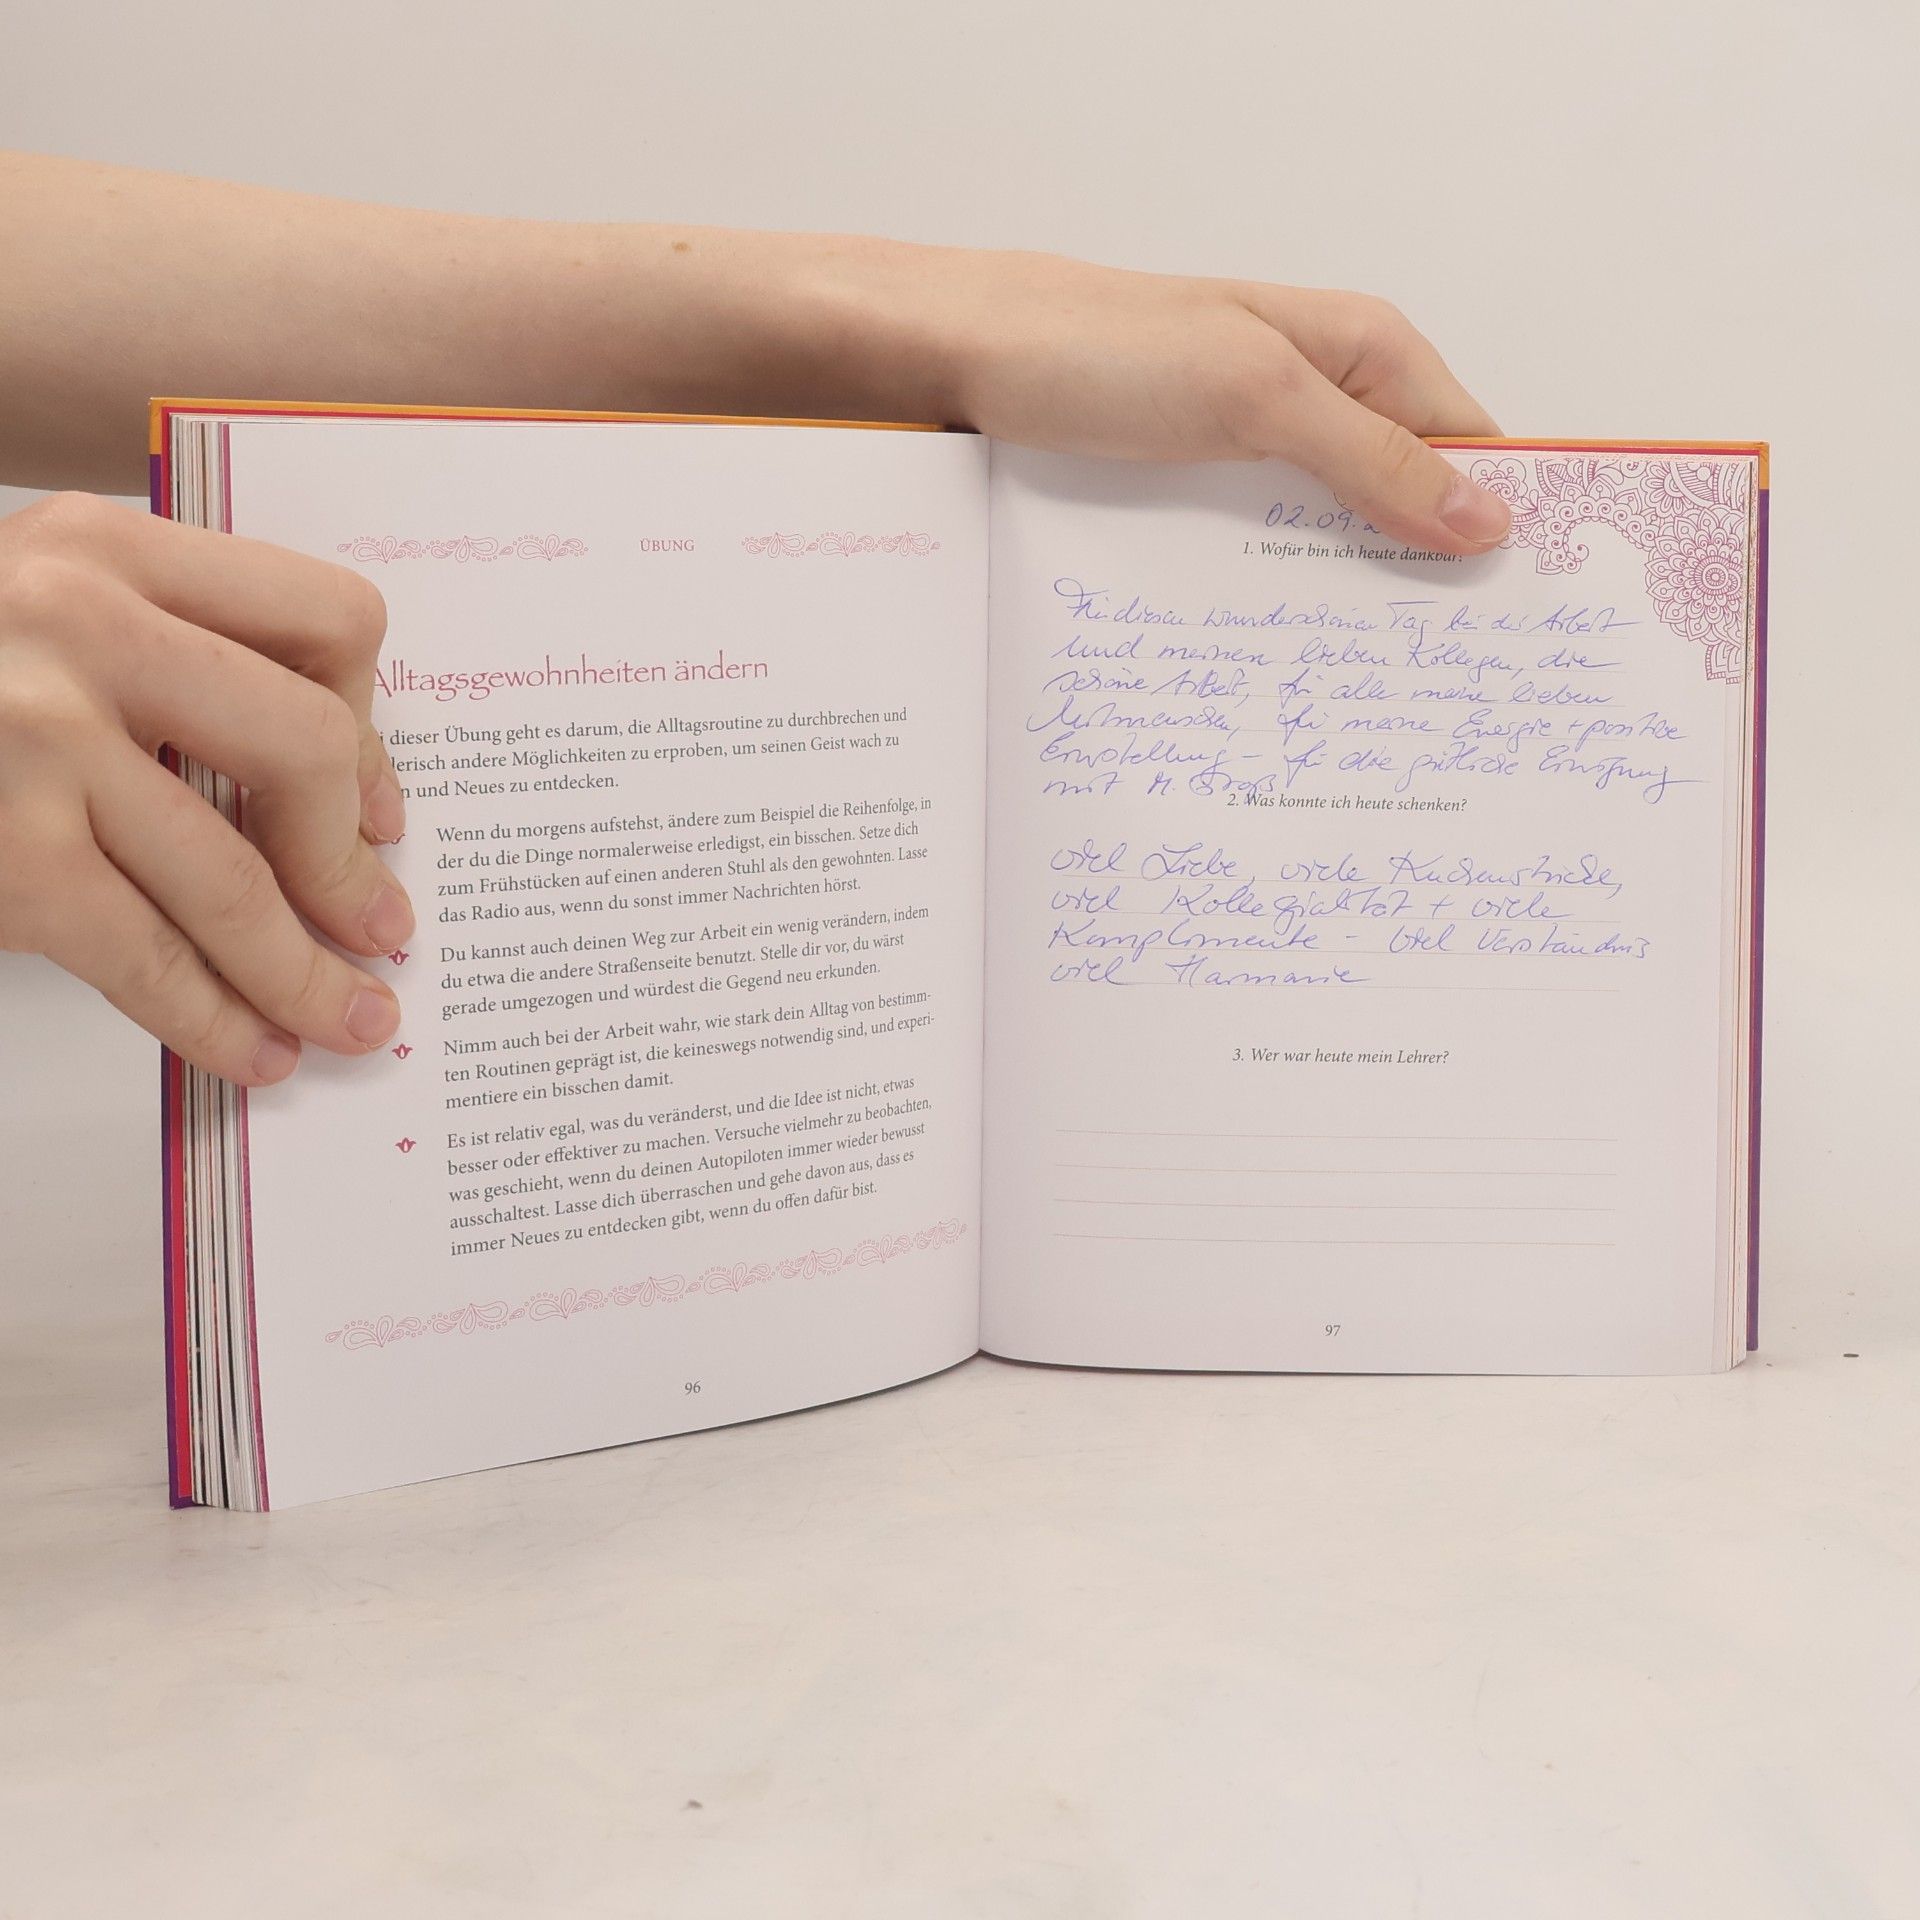 ÜBUNG
Alltagsgewohnheiten ändern
i dieser Übung geht es darum, die Alltagsroutine zu durchbrechen und
lerisch andere Möglichkeiten zu erproben, um seinen Geist wach zu
n und Neues zu entdecken.
Wenn du morgens aufstehst, ändere zum Beispiel die Reihenfolge, in
der du die Dinge normalerweise erledigst, ein bisschen. Setze dich
zum Frühstücken auf einen anderen Stuhl als den gewohnten. Lasse
das Radio aus, wenn du sonst immer Nachrichten hörst.
Du kannst auch deinen Weg zur Arbeit ein wenig verändern, indem
du etwa die andere Straßenseite benutzt. Stelle dir vor, du wärst
gerade umgezogen und würdest die Gegend neu erkunden.
Nimm auch bei der Arbeit wahr, wie stark dein Alltag von bestimm-
ten Routinen geprägt ist, die keineswegs notwendig sind, und experi-
mentiere ein bisschen damit.
Es ist relativ egal, was du veränderst, und die Idee ist nicht, etwas
besser oder effektiver zu machen. Versuche vielmehr zu beobachten,
was geschieht, wenn du deinen Autopiloten immer wieder bewusst
ausschaltest. Lasse dich überraschen und gehe davon aus, dass es
immer Neues zu entdecken gibt, wenn du offen dafür bist.
96
02.09.
1. Wofür bin ich heute dankbar?
Für diesen wunderschönen Tag bei der Arbeit
und meinen lieben Kollegen, die
schöne Arbeit, für alle meine lieben
Mitmenschen, für meine Energie + positive
Einstellung – für die gütliche Einigung
mit M.
2. Was konnte ich heute schenken?
viel Liebe, viele Kuchenstücke,
viel Kollegialität + viele
Komplimente – viel Verständnis
viel Harmonie
3. Wer war heute mein Lehrer?
97